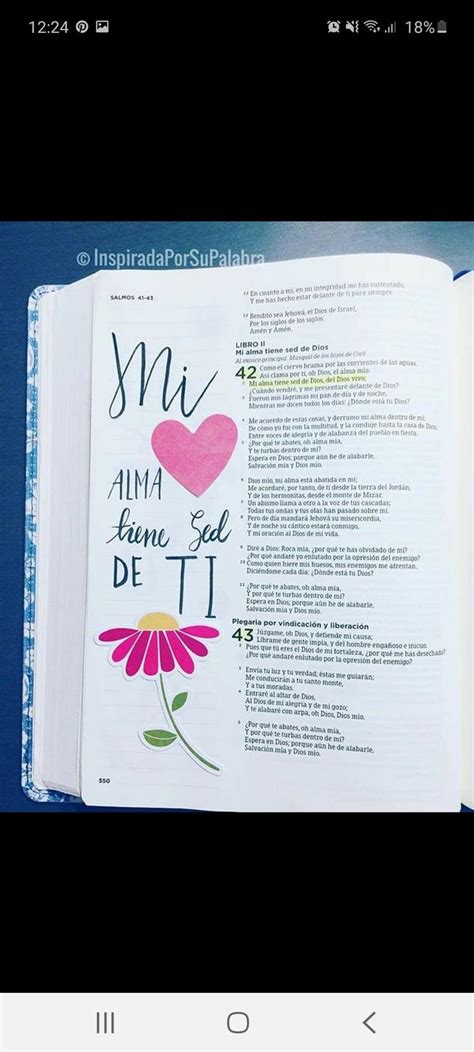 12:24
18%
© InspiradaPorSuPalabra
SALMOS 41-43
Mi
ALMA
tiene Sed
DE TI
12 En cuanto a mí, en mi integridad me has sustentado,
Y me has hecho estar delante de ti para siempre.
13 Bendito sea Jehová, el Dios de Israel,
Por los siglos de los siglos.
Amén y Amén.
LIBRO II
Mi alma tiene sed de Dios
Al músico principal. Masquil de los hijos de Coré.
42 Como el ciervo brama por las corrientes de las aguas,
Así clama por ti, oh Dios, el alma mía.
2 Mi alma tiene sed de Dios, del Dios vivo;
¿Cuándo vendré, y me presentaré delante de Dios?
3 Fueron mis lágrimas mi pan de día y de noche,
Mientras me dicen todos los días: ¿Dónde está tu Dios?
4 Me acuerdo de estas cosas, y derramo mi alma dentro de mí;
De cómo yo fui con la multitud, y la conduje hasta la casa de Dios,
Entre voces de alegría y de alabanza del pueblo en fiesta.
5 ¿Por qué te abates, oh alma mía,
Y te turbas dentro de mí?
Espera en Dios; porque aún he de alabarle,
Salvación mía y Dios mío.
6 Dios mío, mi alma está abatida en mí;
Me acordaré, por tanto, de ti desde la tierra del Jordán,
Y de los hermonitas, desde el monte de Mizar.
7 Un abismo llama a otro a la voz de tus cascadas;
Todas tus ondas y tus olas han pasado sobre mí.
8 Pero de día mandará Jehová su misericordia,
Y de noche su cántico estará conmigo,
Y mi oración al Dios de mi vida.
9 Diré a Dios: Roca mía, ¿por qué te has olvidado de mí?
¿Por qué andaré yo enlutado por la opresión del enemigo?
10 Como quien hiere mis huesos, mis enemigos me afrentan,
Diciéndome cada día: ¿Dónde está tu Dios?
11 ¿Por qué te abates, oh alma mía,
Y por qué te turbas dentro de mí?
Espera en Dios; porque aún he de alabarle,
Salvación mía y Dios mío.
Plegaria por vindicación y liberación
43 Júzgame, oh Dios, y defiende mi causa;
Líbrame de gente impía, y del hombre engañoso e inicuo.
2 Pues que tú eres el Dios de mi fortaleza, ¿por qué me has desechado?
¿Por qué andaré enlutado por la opresión del enemigo?
3 Envía tu luz y tu verdad; éstas me guiarán;
Me conducirán a tu santo monte,
Y a tus moradas.
4 Entraré al altar de Dios,
Al Dios de mi alegría y de mi gozo;
Y te alabaré con arpa, oh Dios, Dios mío.
5 ¿Por qué te abates, oh alma mía,
Y por qué te turbas dentro de mí?
Espera en Dios; porque aún he de alabarle,
Salvación mía y Dios mío.
550